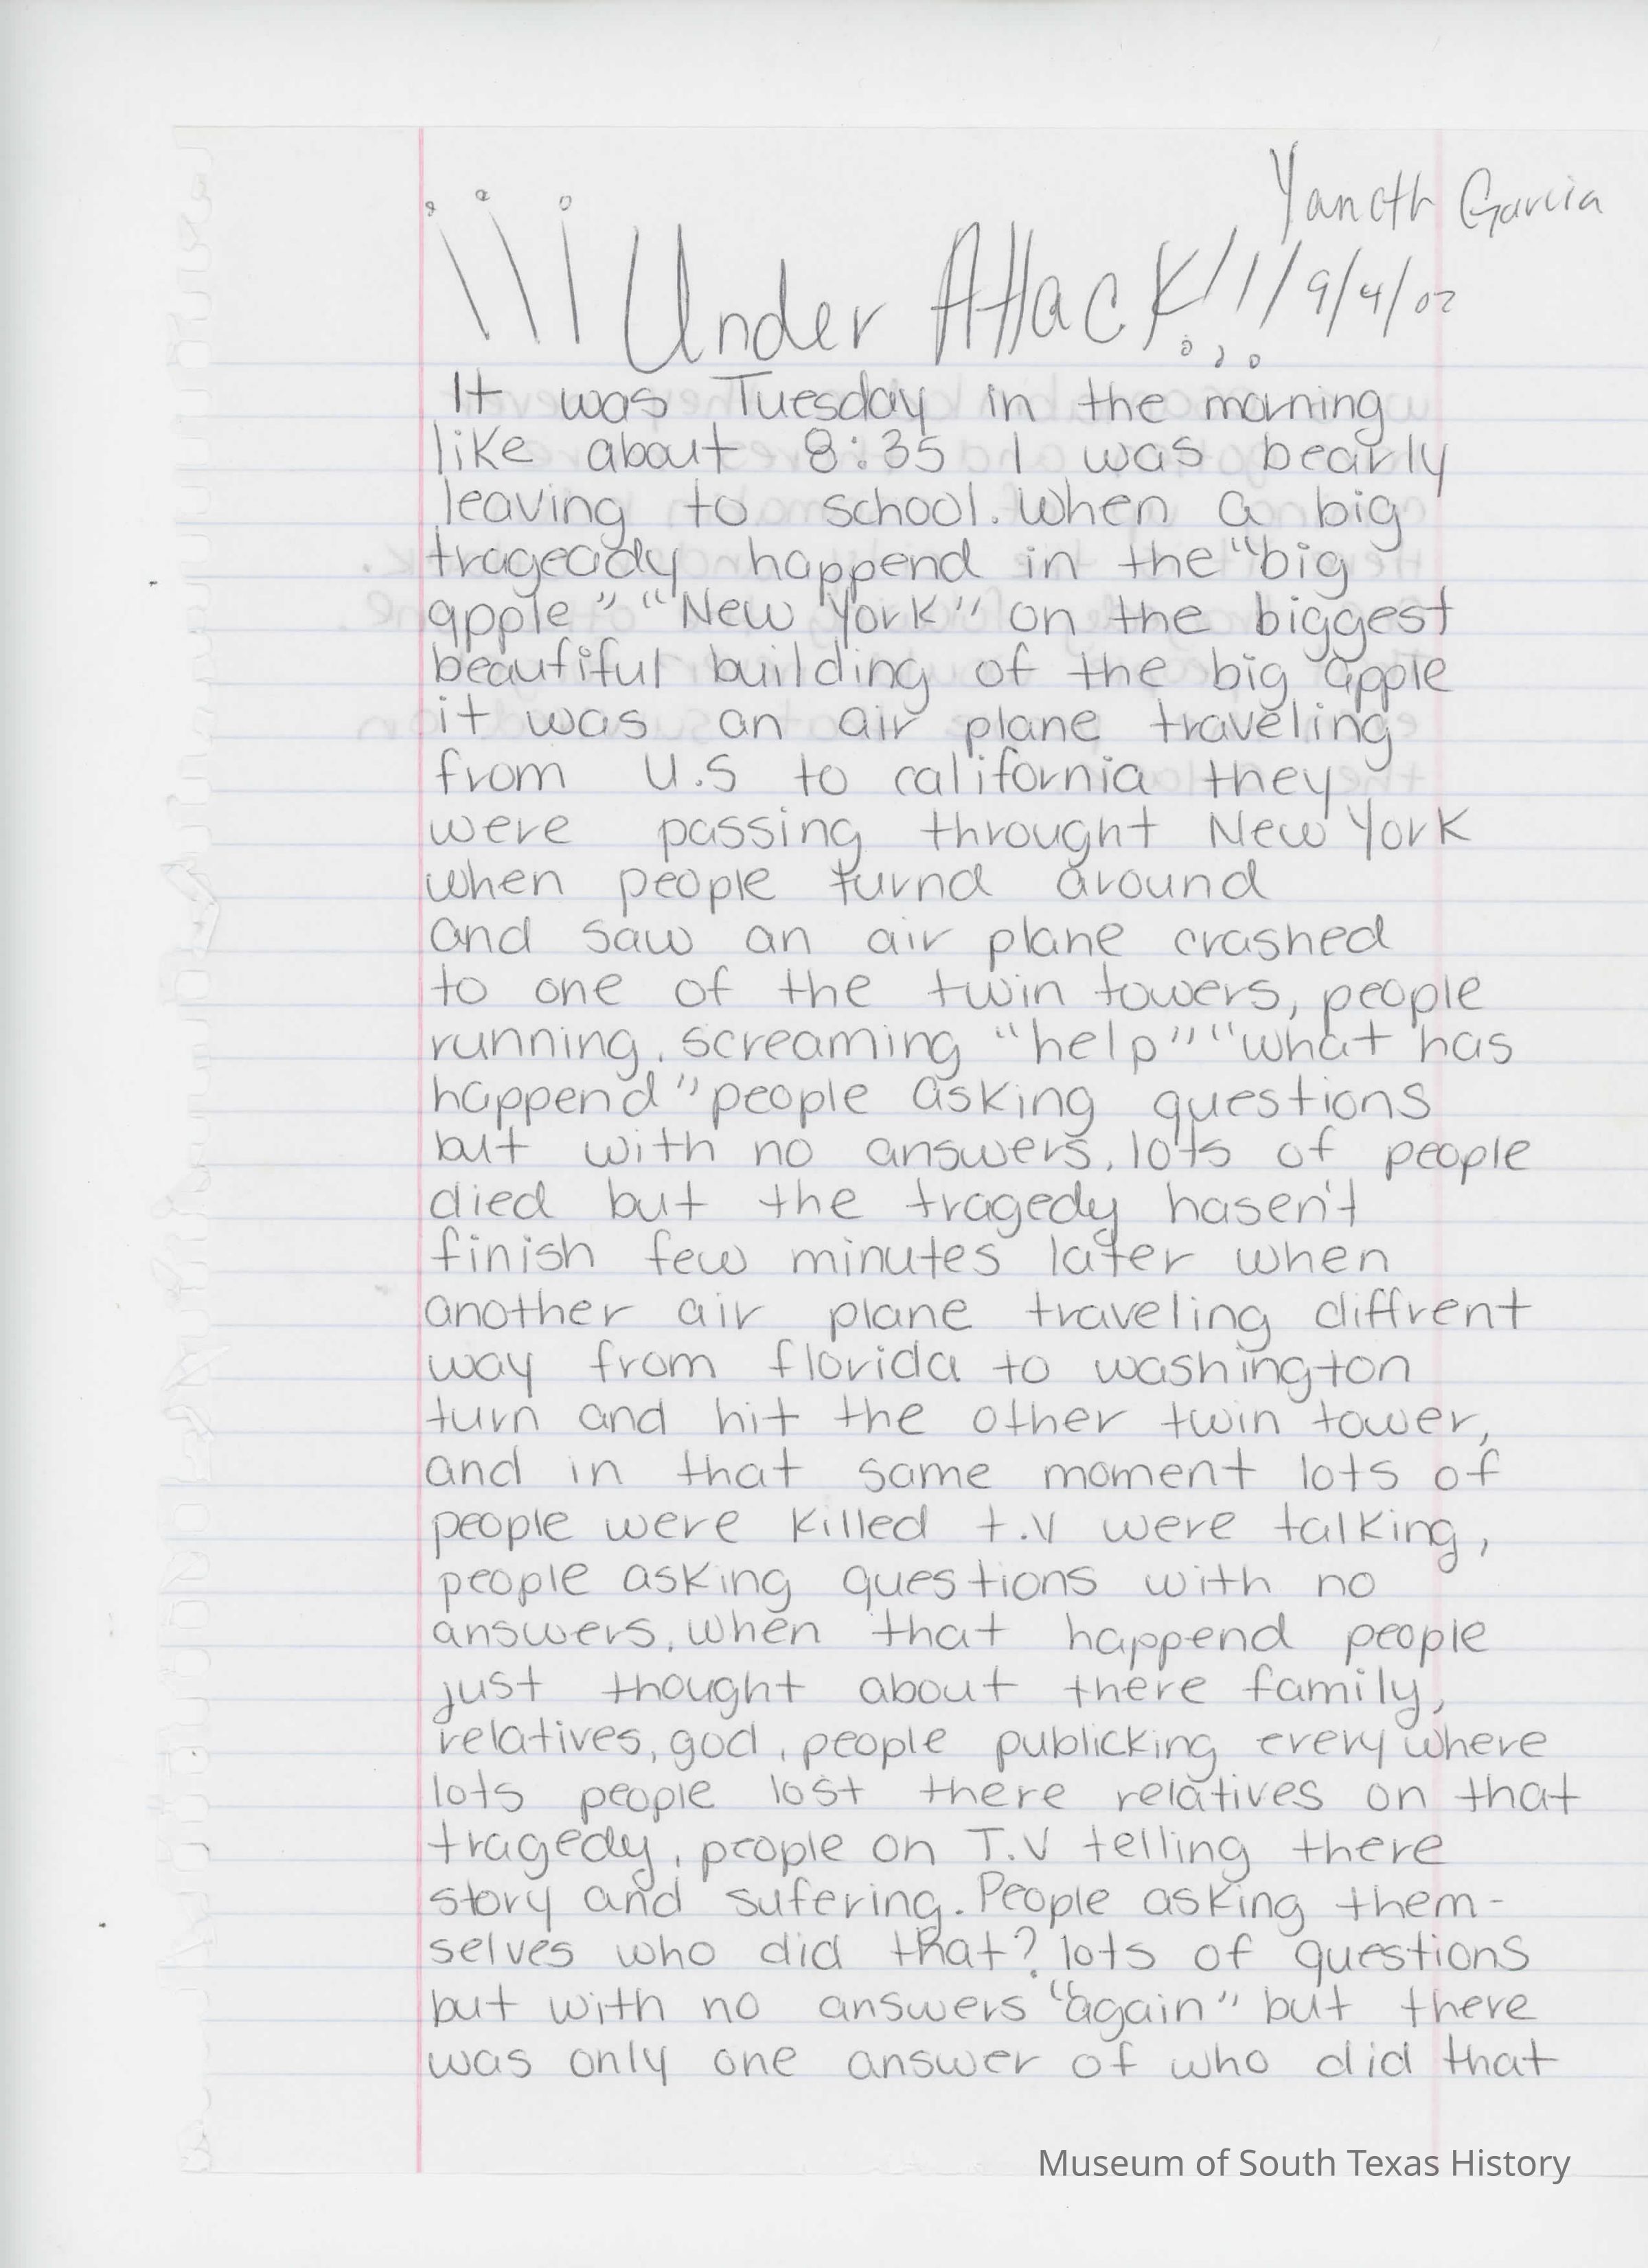 Yaneth Garcia
¡¡¡Under Attack!!! 9/4/02
It was Tuesday in the morning
like about 8:35 I was bearly
leaving to school. When a big
trageady happend in the "big
apple" "New York" on the biggest
beautiful building of the big apple
it was an air plane traveling
from U.S to california they
were passing throught New York
when people turnd around
and saw an air plane crashed
to one of the twin towers, people
running, screaming "help" "what has
happend" people asking questions
but with no answers, lots of people
died but the tragedy hasen't
finish few minutes later when
another air plane traveling diffrent
way from florida to washington
turn and hit the other twin tower,
and in that same moment lots of
people were killed t.v were talking,
people asking questions with no
answers, when that happend people
just thought about there family,
relatives, god, people publicking every where
lots people lost there relatives on that
tragedy, people on T.V telling there
story and sufering. People asking them-
selves who did that? lots of questions
but with no answers "again" but there
was only one answer of who did that
Museum of South Texas History